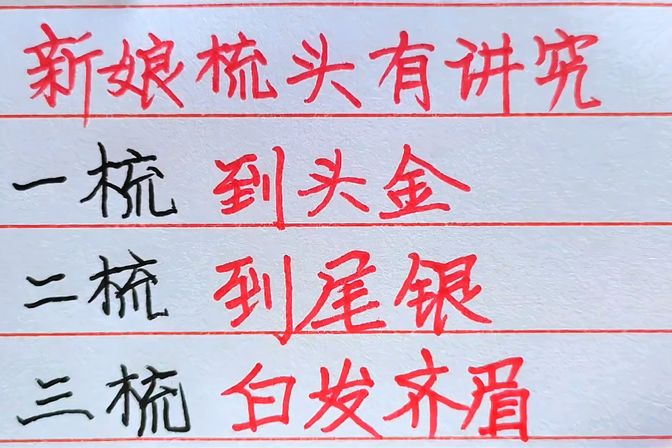 新娘梳头有讲究
一梳 到头金
二梳 到尾银
三梳 白发齐眉